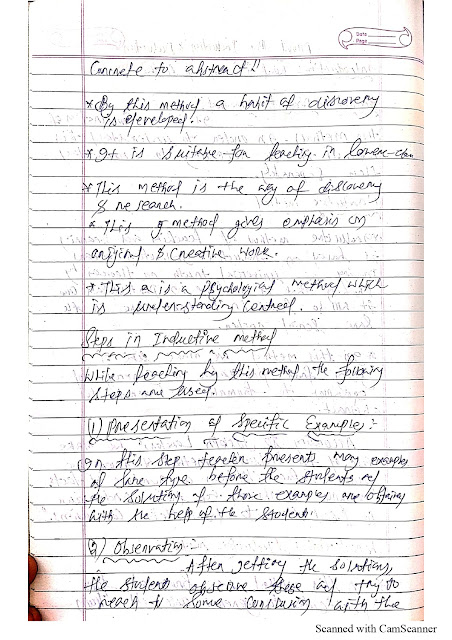 Date
Page
Concrete to abstract"
* By this method a habit of discovery
is developed.
* It is suitabe for teaching in lower-class
* This method is the way of discovery
& research.
* This method gives emphasis on
original & Creative work.
* This is a psychological method which
is understanding centred.
Steps in Inductive method
While teaching by this method the following
steps are used.
(1) Presentation of Specific Examples:-
In this step teacher presents many examples
of same type before the students and
the solution of those examples are obtained
with the help of the student.
(2) Observation:-
After getting the solution,
the students observe these and try to
reach to some conclusion with the
Scanned with CamScanner